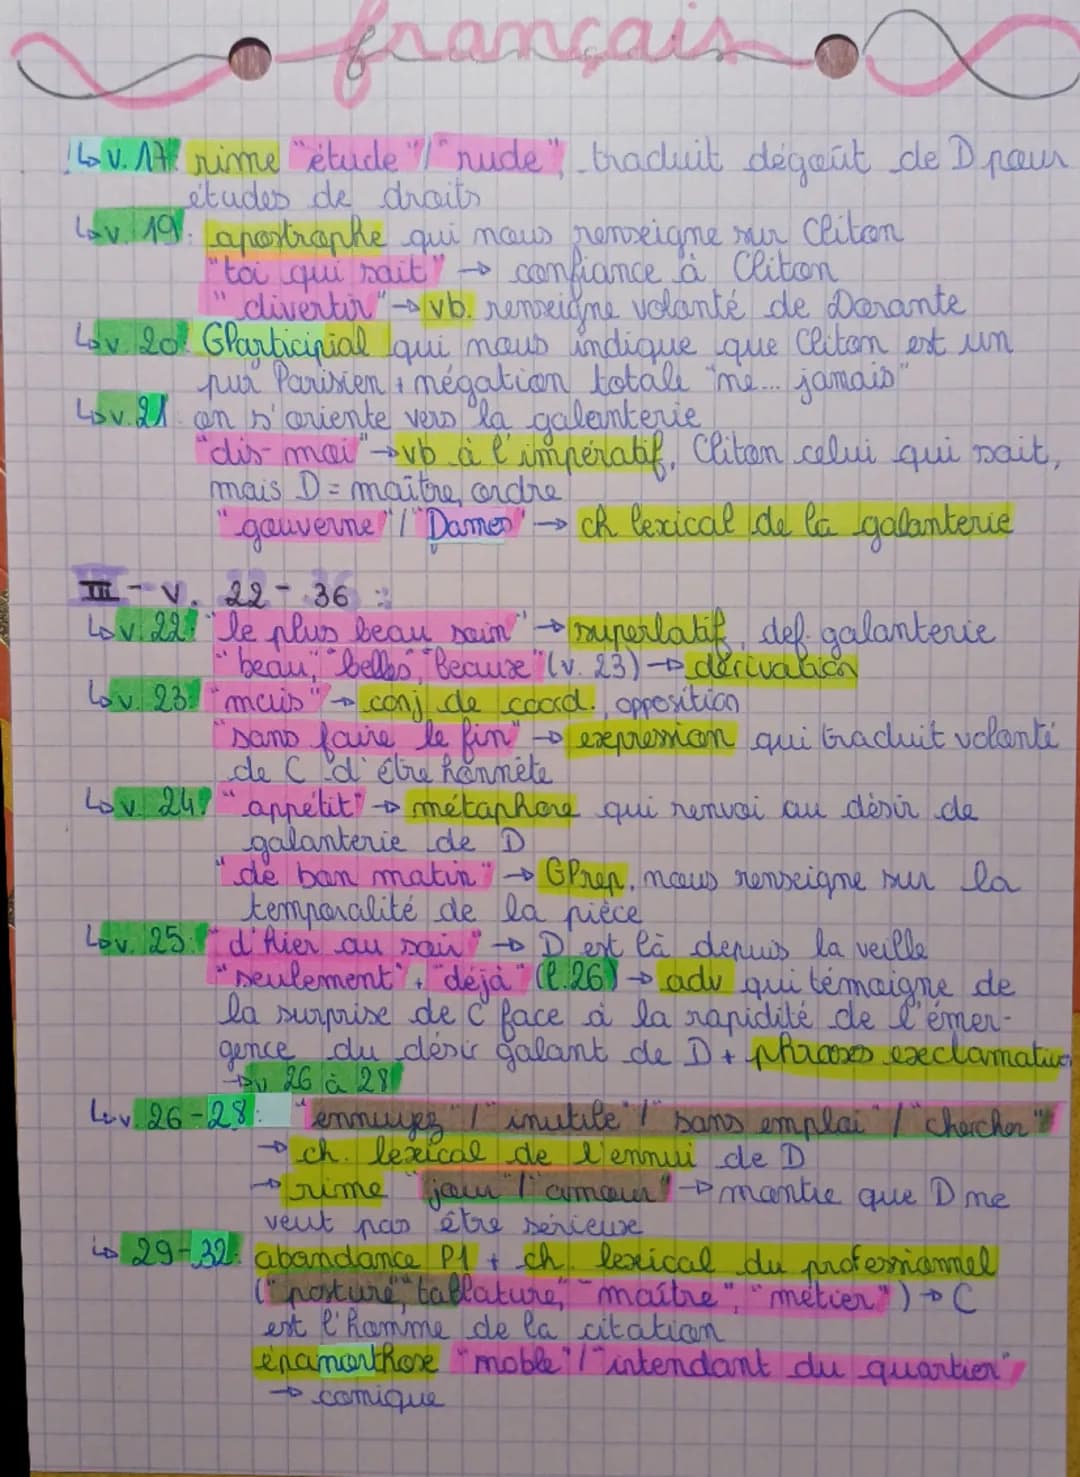 français
↳ v. 17: rime "étude" / "rude", traduit dégoût de D pour
études de droits
↳ v. 19: apostrophe qui nous renseigne sur Cliton
"toi qui sait" → confiance à Cliton
"divertir" → vb. renseigne volonté de Dorante
↳ v. 20: GParticipial qui nous indique que Cliton est un
pur Parisien + négation totale "ne... jamais"
↳ v. 21: on s'oriente vers la galanterie
"dis-moi" → vb à l'impératif, Cliton celui qui sait,
mais D = maître, ordre
"gouverne" / "Dames" → ch lexical de la galanterie
III - v. 22 - 36 :
↳ v. 22: "le plus beau soin" → superlatif, def. galanterie
"beau", "belles", "Beaux" (v. 23) → dérivation
↳ v. 23: "mais" → conj de coord., opposition
"sans faire le fin" → expression qui traduit volonté
de C d'être honnête
↳ v. 24: "appétit" → métaphore qui renvoi au désir de
galanterie de D
"de bon matin" → GPrep, nous renseigne sur la
temporalité de la pièce
↳ v. 25: "d'hier au soir" → D est là depuis la veille
"seulement", + "déjà" (l.26) → adv qui témoigne de
la surprise de C face à la rapidité de l'émer-
gence du désir galant de D + phrases exclamatives
→ v 26 à 28
↳ v. 26-28: "ennuyez" / "inutile" / "sans emploi" / "chercher"
→ ch. lexical de l'ennui de D
→ rime "jour" / "amour" → montre que D ne
veut pas être sérieux
↳ 29-32: abondance P1 + ch. lexical du professionnel
("posture", tablature", "maître", "métier") → C
est l'homme de la citation
épanorthose "noble" / "intendant du quartier"
→ comique